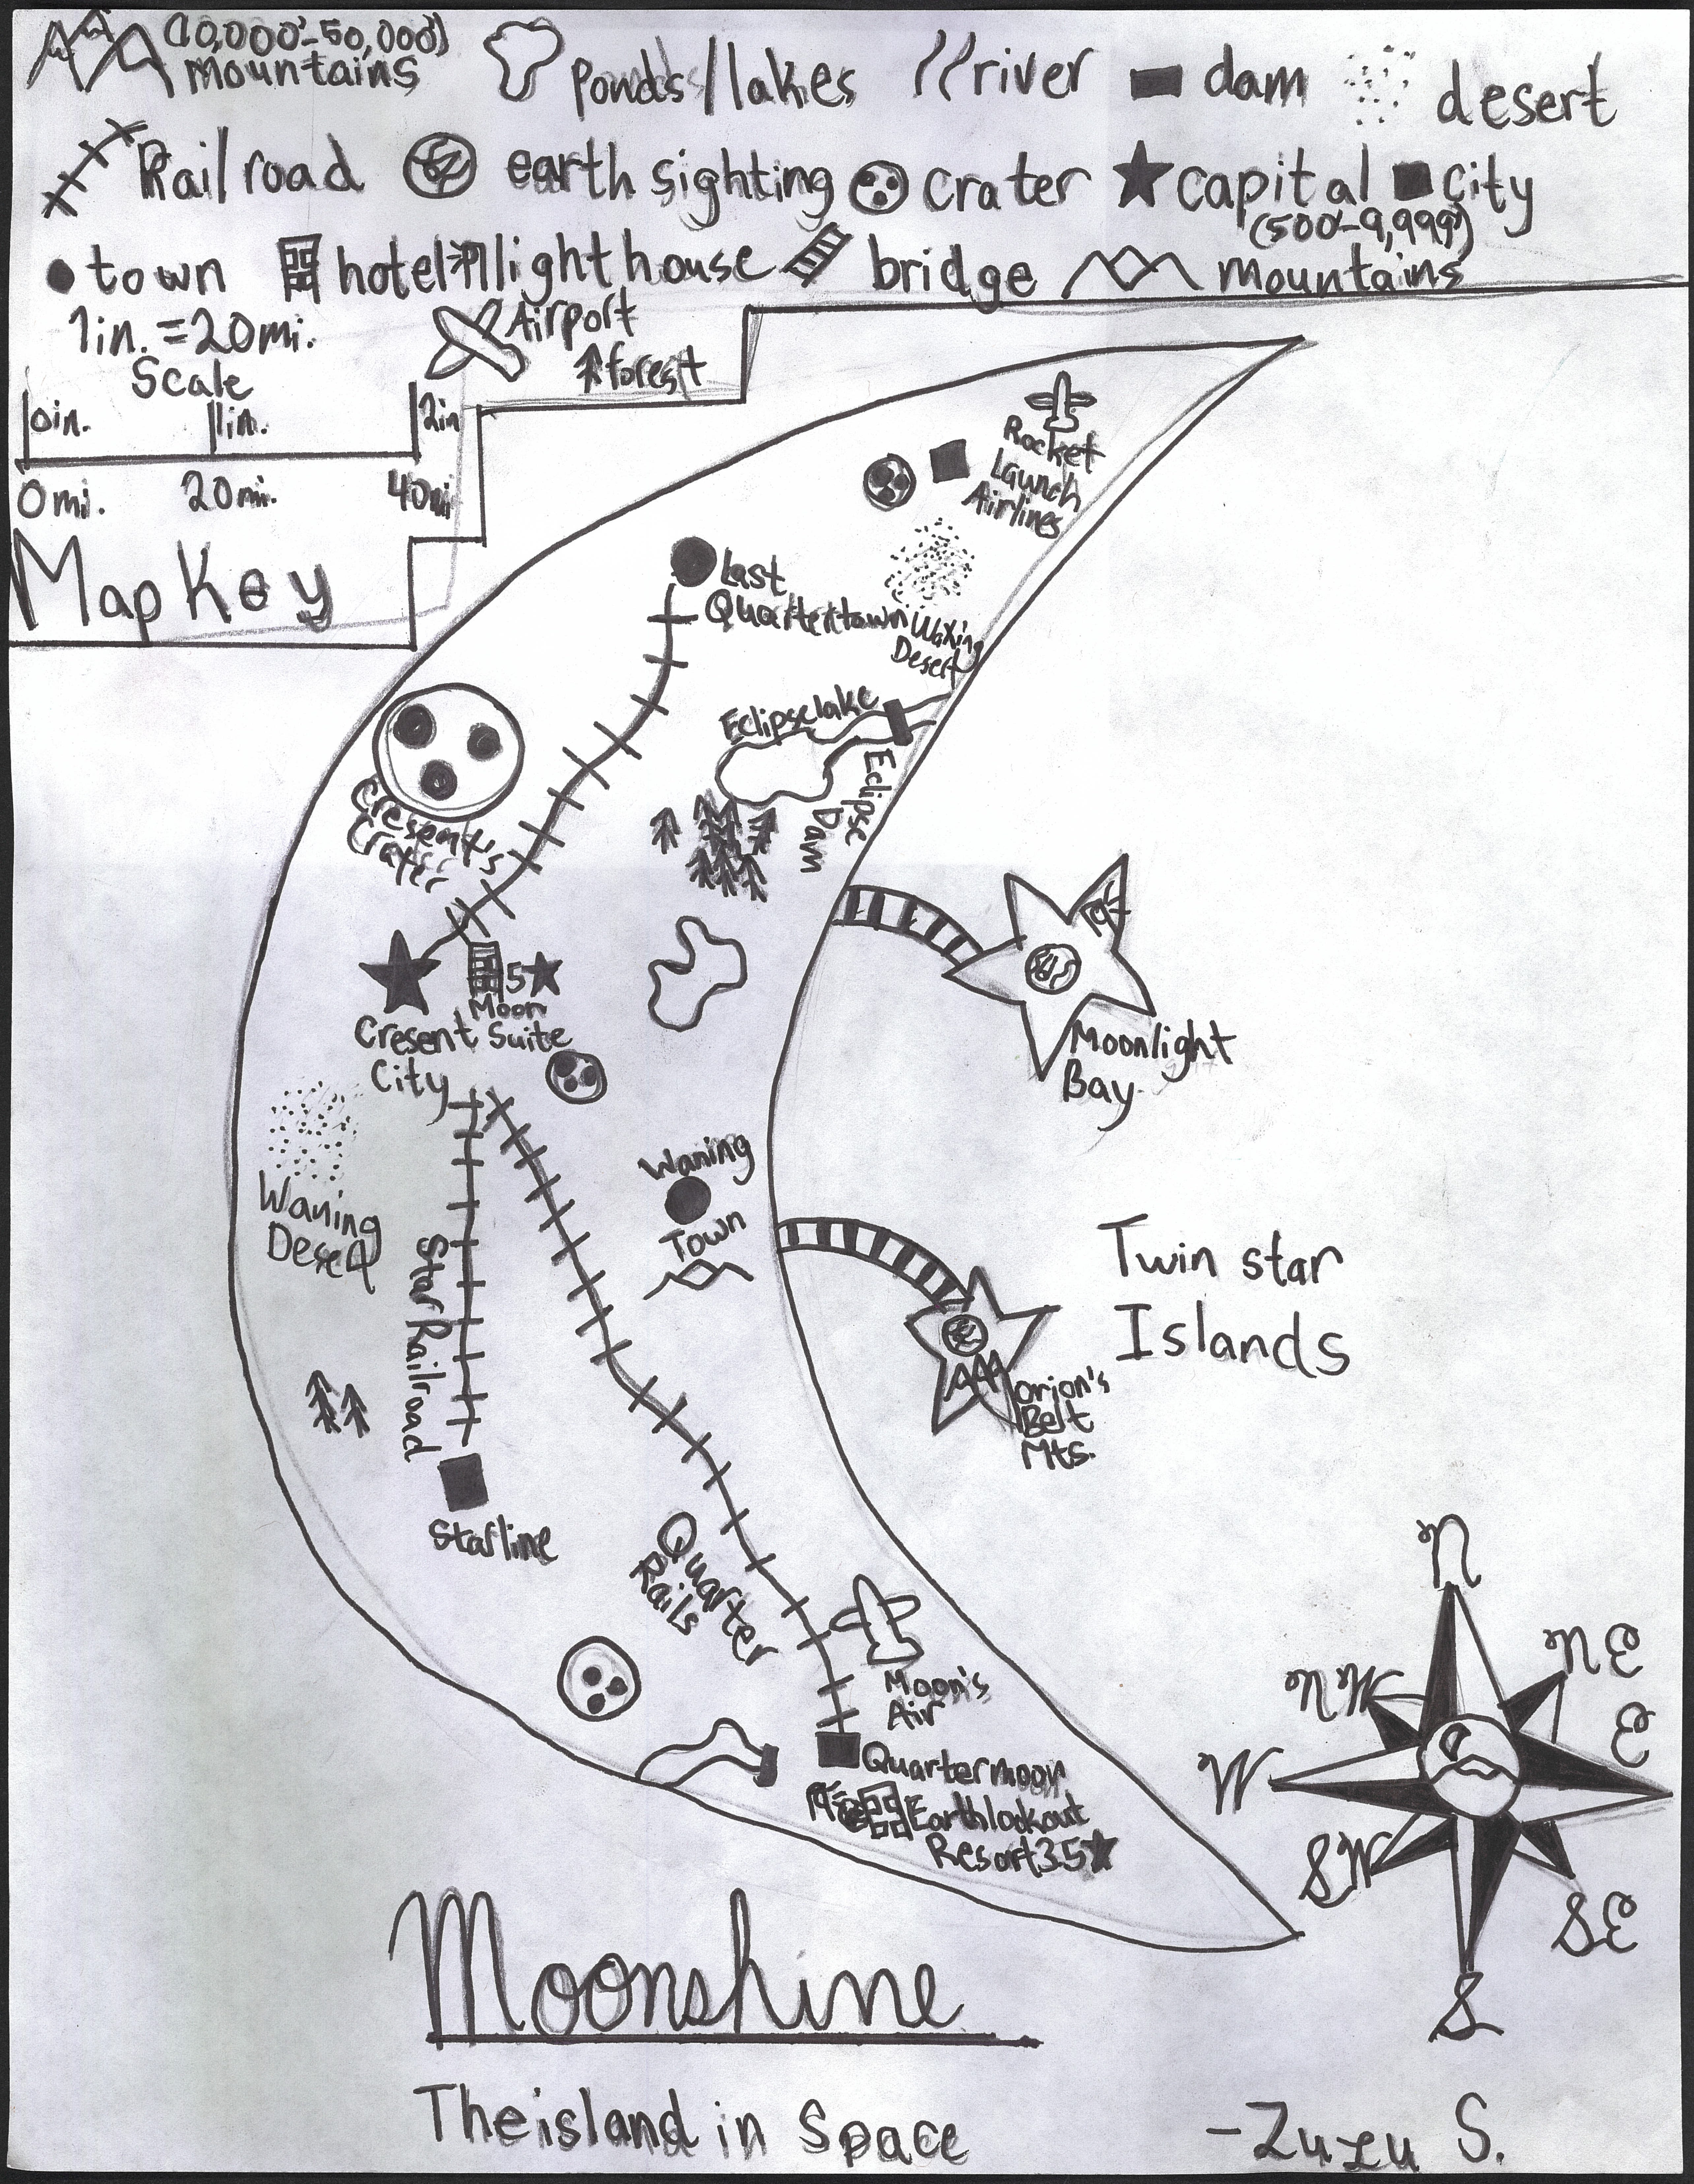 (10,000'-50,000')
mountains
Ponds/lakes
river
dam
desert
Railroad
earth sighting
crater
capital
city
town
hotel
lighthouse
bridge
(500'-9,999')
mountains
1in. =20mi.
Scale
0in.
1in.
2in
0mi.
20mi.
40mi
Airport
forest
Map Key
Rocket
Launch
Airlines
Last
Quartertown
Waxing
Desert
Eclipse lake
Eclipse
Dam
Cresent's
Crater
5
Moon
Suite
Cresent
City
Moonlight
Bay
Waning
Desert
Waning
Town
Star Railroad
Twin star
Islands
Orion's
Belt
Mts.
Starline
Quarter
Rails
Moon's
Air
Quartermoon
Earthlookout
Resort 3.5
N
NE
E
SE
S
SW
W
NW
Moonshine
The island in Space
-Zulu S.